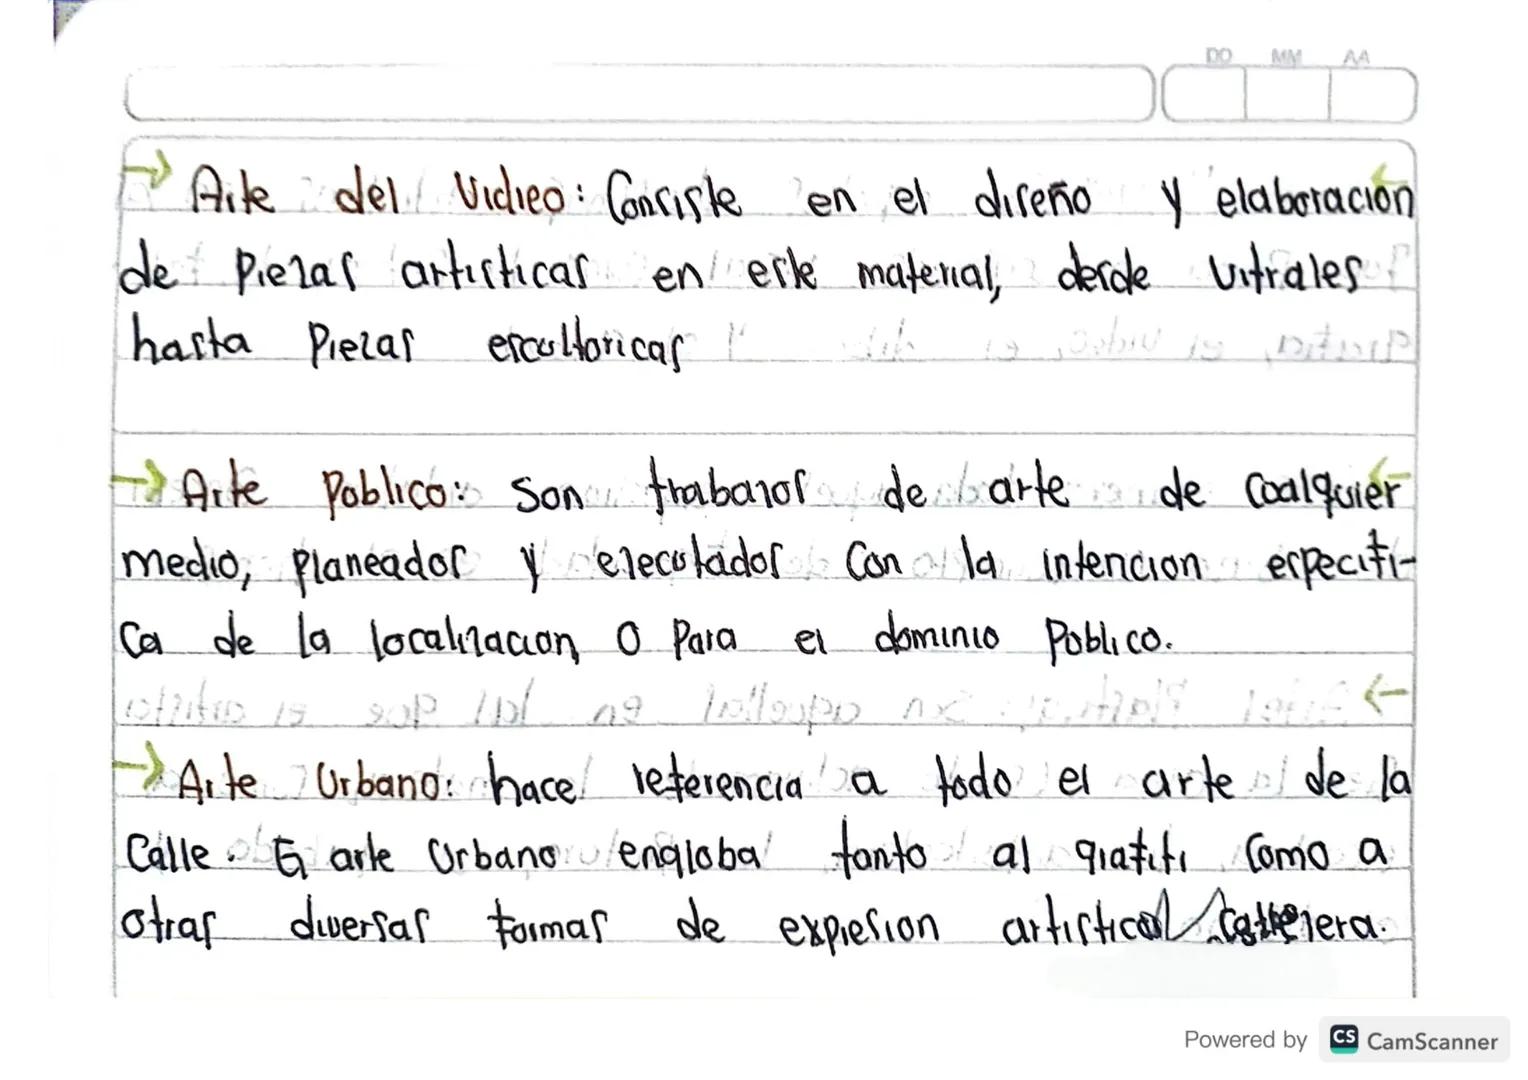 DD MM AA
→ Arte del Vidieo: Consiste en el diseño y elaboracion
de Piezas artisticas en este material, desde vitrales
hasta Piezas escultoricas
→ Arte Publico: Son trabajos de arte de cualquier
medio, planeados y ejecutados Con la intencion especifi-
Ca de la localizacion, o Para el dominio Publico.
→ Arte Urbano: hace referencia a todo el arte de la
Calle. El arte Urbano engloba tanto al grafiti Como a
otras diversas formas de expresion artistica
Powered by CS CamScanner